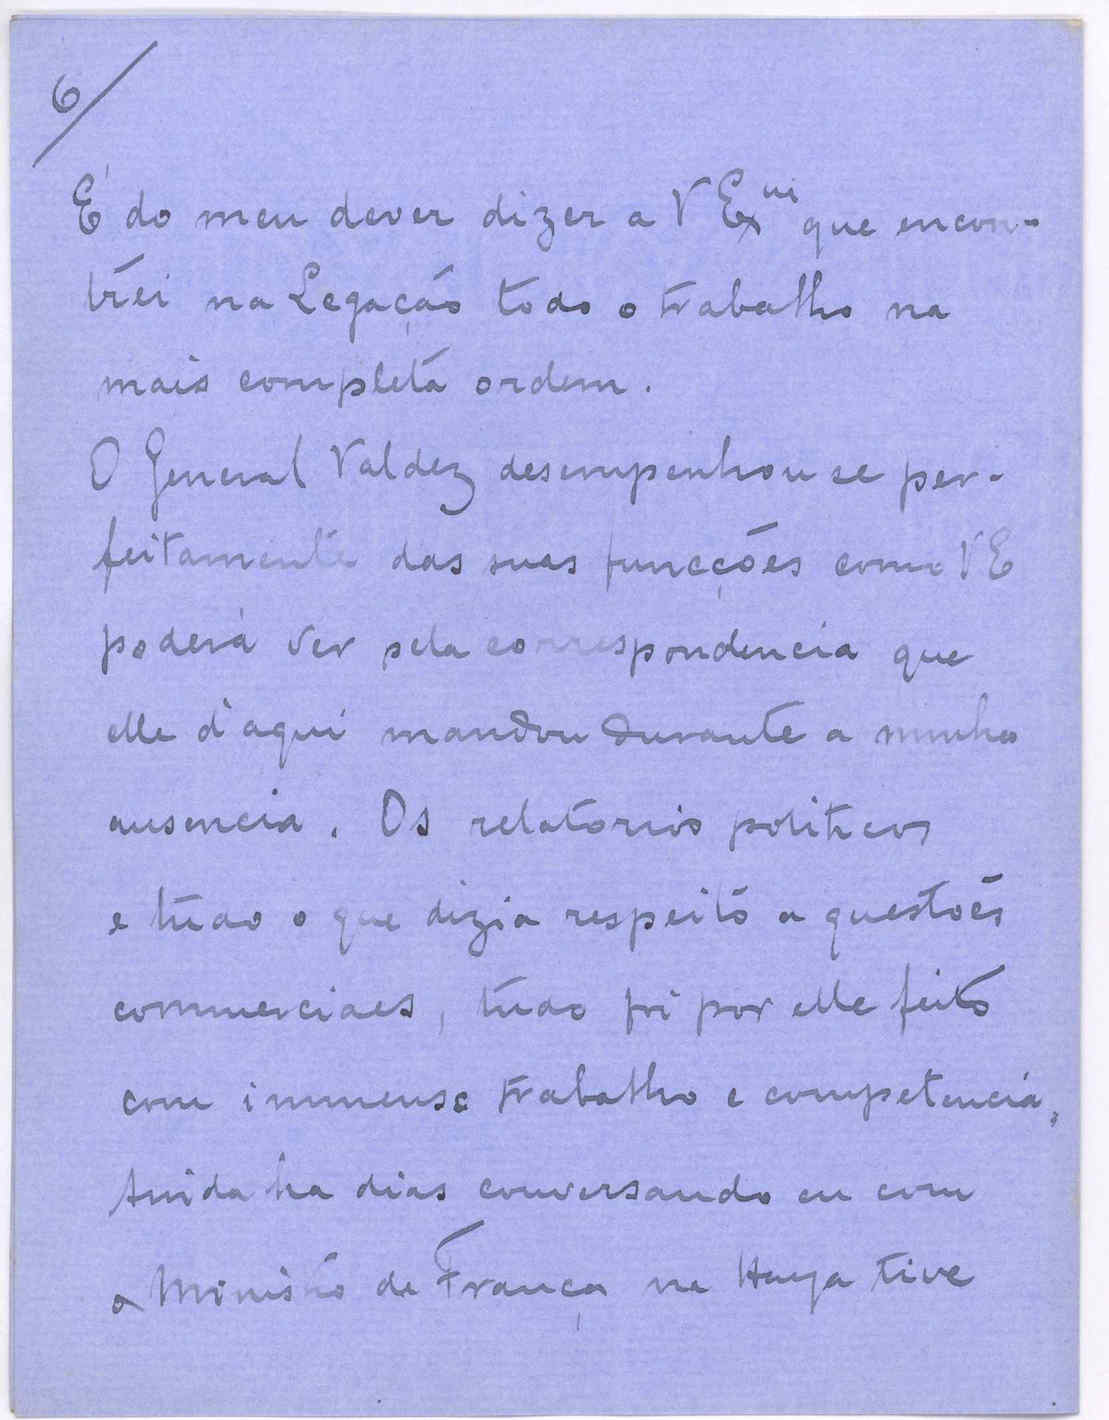 6/
É do meu dever dizer a V Ex<sup>cia</sup> que encon-
trei na Legação todo o trabalho na
mais completa ordem.
O General Valdez desempenhou se per-
feitamente das suas funcções como V E
poderá ver pela correspondencia que
elle d'aqui mandou durante a minha
ausencia. Os relatorios politicos
e tudo o que dizia respeito a questões
commerciaes, tudo foi por elle feito
com immenso trabalho e competencia.
Ainda ha dias conversando eu com
o Ministro de França na Haya tive